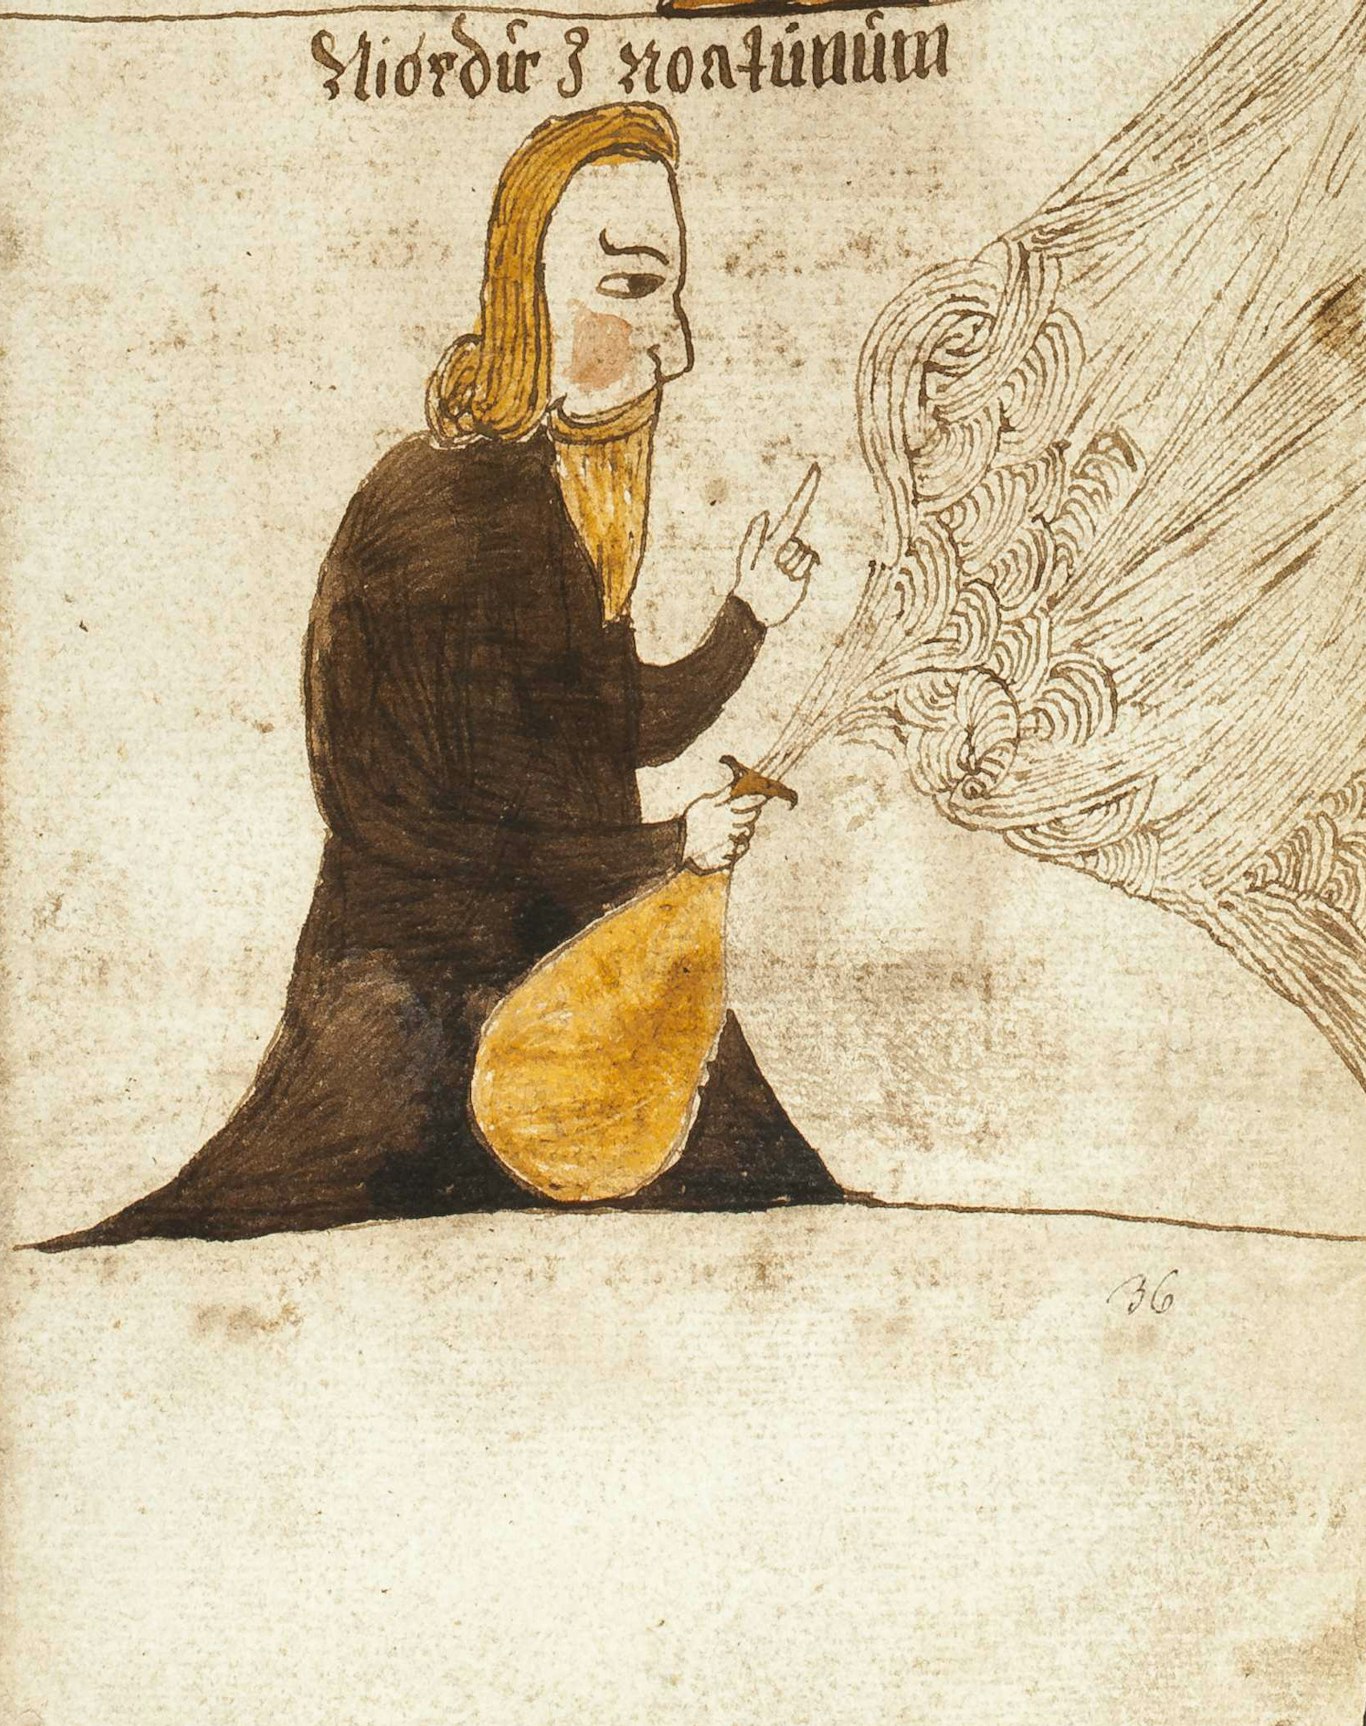 Niordur ȝ noatúnúm
36